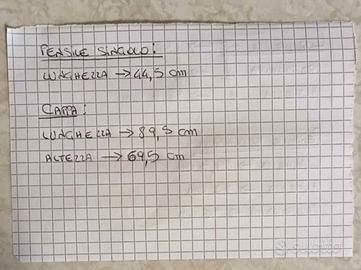 PENSILE SINGOLO:
LUNGHEZZA → 44,5 cm
CAPPA:
LUNGHEZZA → 89,5 cm
ALTEZZA → 69,5 cm